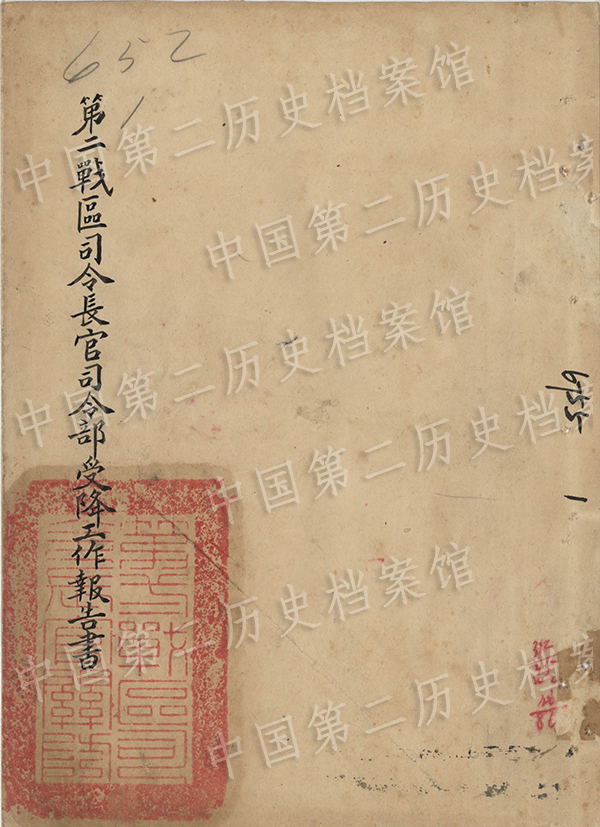 652
1
第二戰區司令長官司令部受降工作報告書
6755
1
第二戰區司
令長官關防
中国第二历史档案馆
中国第二历史档案馆
中国第二历史档案馆
中国第二历史档案馆
中国第二历史档案馆
中国第二历史档案馆